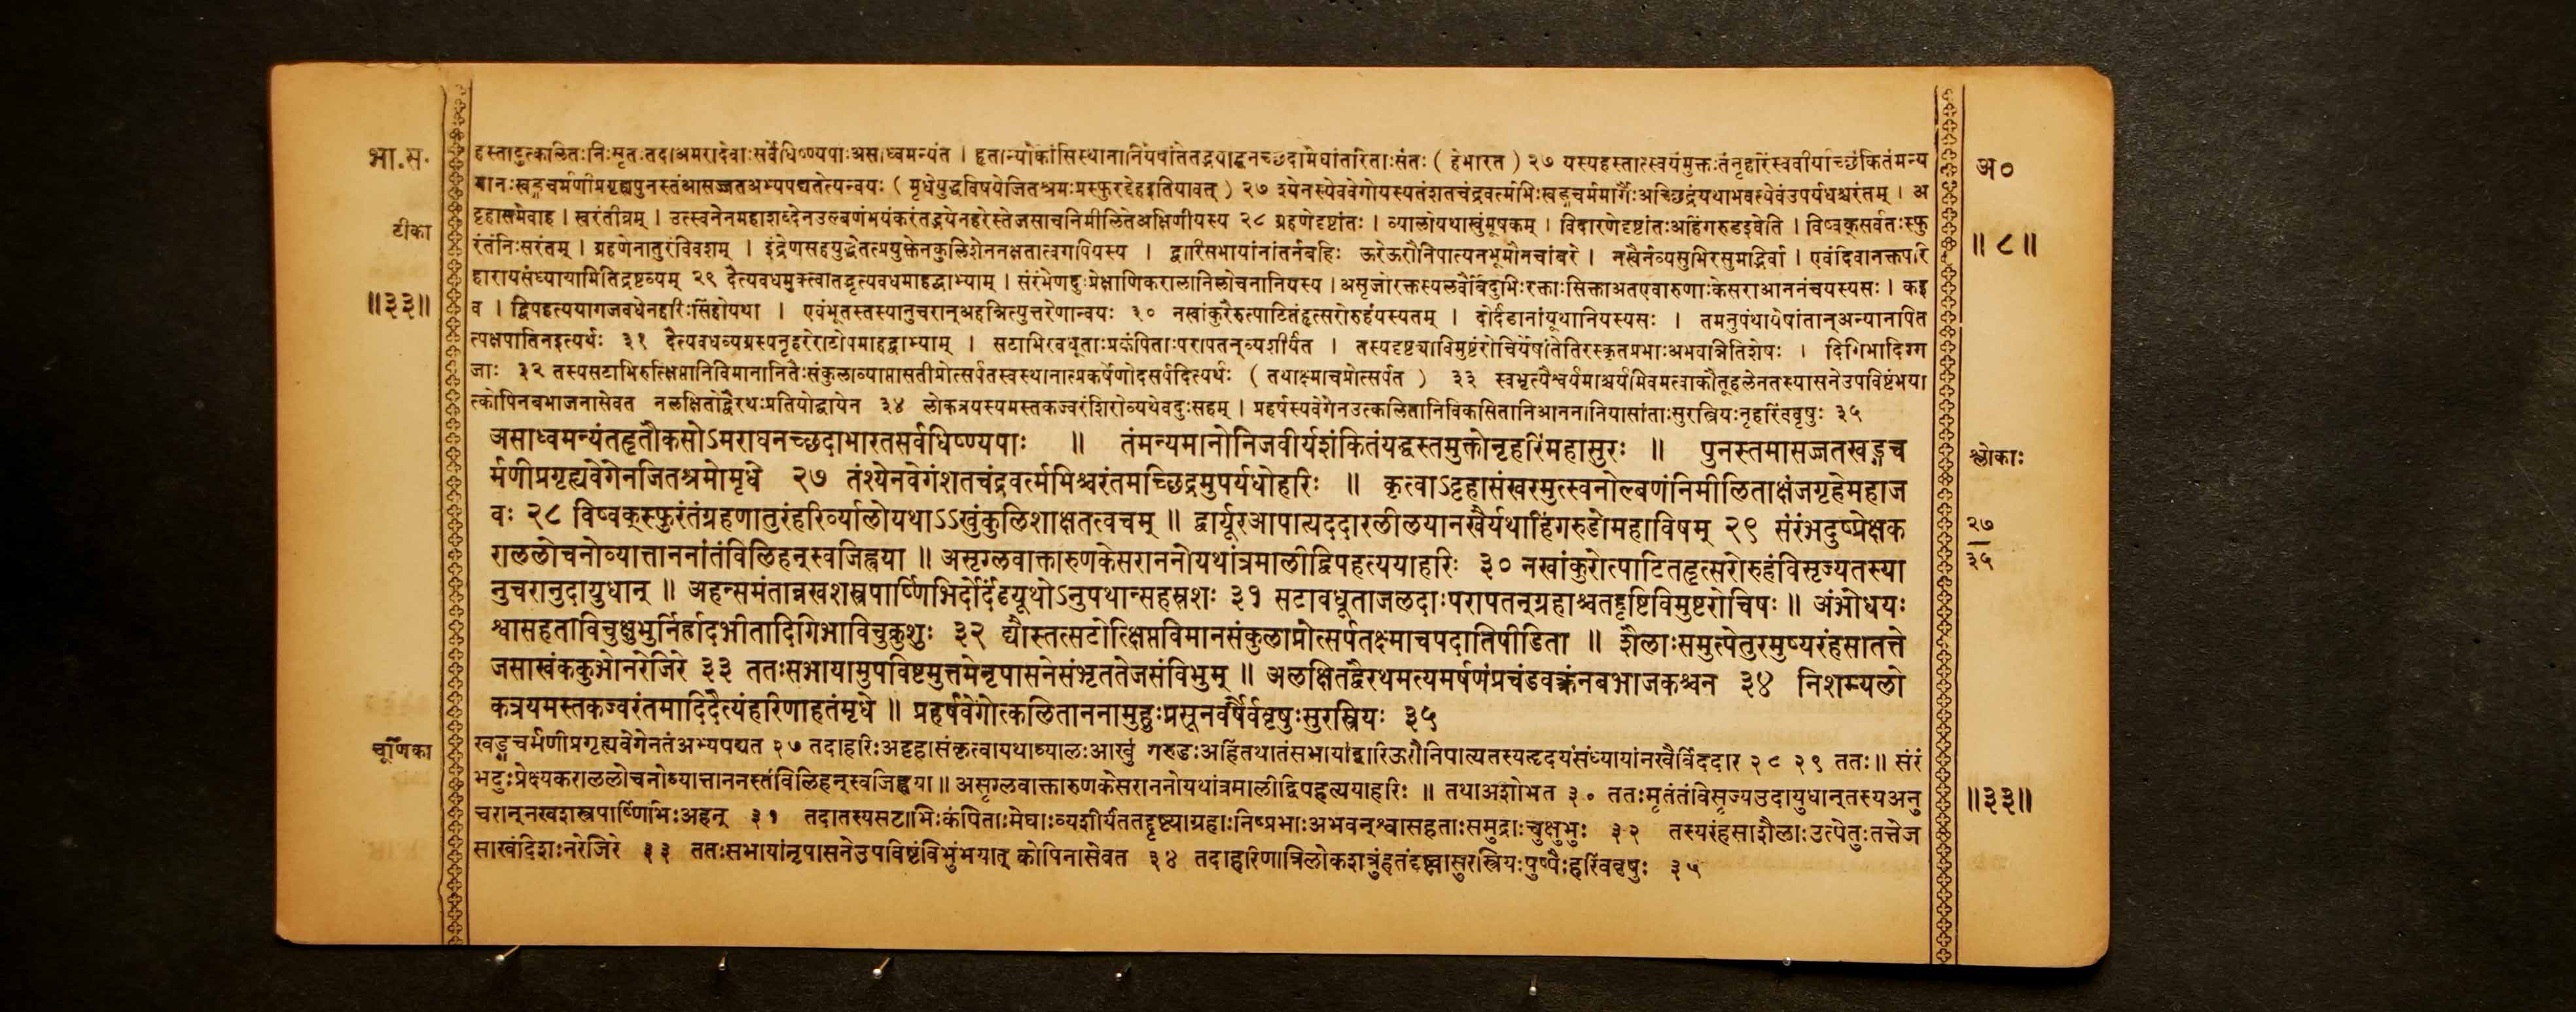 भा.स.
टीका
॥३३॥
चूर्णिका
हस्तादुत्कलितःनिःसृतःतदाअमरादेवाःसर्वेधिष्ण्यपाःअसाध्वमन्यंत । हृतान्योकांसिस्थानानियेषांतेतद्भयाद्घनच्छदामेघांतरिताःसंतः ( हेभारत ) २७ यस्यहस्तात्स्वयंमुक्तःतंनृहरिंस्ववीर्याच्छंकितंमन्य
मानःखङ्गचर्मणीप्रगृह्यपुनस्तंआसज्जतअभ्यपद्यतेत्यन्वयः ( मृधेयुद्धविषयेजितश्रमःप्रस्फुरद्देहइतियावत् ) २७ श्येनस्येववेगोयस्यतंशतचंद्रवर्त्मभिःखङ्गचर्ममार्गैःअच्छिद्रंयथाभवत्येवंउपर्यधश्चरंतम् । अ
ट्टहासमेवाह । खरंतीव्रम् । उत्स्वनेनमहाशब्देनउल्बणंभयंकरंतद्भयेनहरेस्तेजसाचनिमीलितेअक्षिणीयस्य २८ ग्रहणेदृष्टांतः । व्यालोयथाखुंमूषकम् । विदारणेदृष्टांतःअहिंगरुडइवेति । विष्वक्सर्वतःस्फु
रंतंनिःसरंतम् । ग्रहणेनातुरंविवशम् । इंद्रेणसहयुद्धेतत्प्रयुक्तेनकुलिशेननक्षतात्वगपियस्य । द्वारिसभायांनांतर्नबहिः ऊरेऊरौनिपात्यनभूमौनचांबरे । नखैर्नव्यसुभिरसुमद्भिर्वा । एवंदिवानक्तपरि
हारायसंध्यायामितिद्रष्टव्यम् २९ दैत्यवधमुक्त्वातद्भृत्यवधमाहद्वाभ्याम् । संरंभेणदुःप्रेक्षाणिकरालानिलोचनानियस्य । असृजोरक्तस्यलवैर्बिंदुभिःरक्ताःसिक्ताअतएवारुणाःकेसराआननंचयस्यसः । कइ
व । द्विपहत्ययागजवधेनहरिःसिंहोयथा । एवंभूतस्तस्यानुचरान्अहन्नित्युत्तरेणान्वयः ३० नखांकुरैरुत्पाटितंहृत्सरोरुहंयस्यतम् । दोर्दंडानांयूथानियस्यसः । तमनुपंथायेषांतान्अन्यानपित
त्पक्षपातिनइत्यर्थः ३१ दैत्यवधव्यग्रस्यनृहरेराटोपमाहद्वाभ्याम् । सटाभिरवधूताःप्रकंपिताःपरापतन्व्यशीर्यंत । तस्यदृष्ट्याविमुष्टंरोचिर्येषांतेतिरस्कृतप्रभाःअभवन्नितिशेषः । दिगिभादिग्ग
जाः ३२ तस्यसटाभिरुत्क्षिप्तानिविमानानितैःसंकुलाव्याप्तासतीप्रोत्सर्पतस्वस्थानात्प्रकर्षेणोदसर्पदित्यर्थः ( तथाक्ष्माचप्रोत्सर्पत ) ३३ स्वभृत्यैश्वर्यमाश्चर्यमिवमत्वाकौतूहलेनतस्यासनेउपविष्टंभया
त्कोपिनबभाजनासेवत नलक्षितोद्वैरथःप्रतियोद्धायेन ३४ लोकत्रयस्यमस्तकज्वरंशिरोव्यथेवदुःसहम् । प्रहर्षस्यवेगेनउत्कलितानिविकसितानिआननानियासांताःसुरस्त्रियःनृहरिंववृषुः ३५
असाध्वमन्यंतहृतौकसोऽमराघनच्छदाभारतसर्वधिष्ण्यपाः ॥ तंमन्यमानोनिजवीर्यशंकितंयद्धस्तमुक्तोनृहरिंमहासुरः ॥ पुनस्तमासज्जतखङ्गच
र्मणीप्रगृह्यवेगेनजितश्रमोमृधे २७ तंश्येनवेगंशतचंद्रवर्त्मभिश्चरंतमच्छिद्रमुपर्यधोहरिः ॥ कृत्वाऽट्टहासंखरमुत्स्वनोल्बणंनिमीलिताक्षंजगृहेमहाज
वः २८ विष्वक्स्फुरंतंग्रहणातुरंहरिर्व्यालोयथाऽऽखुंकुलिशाक्षतत्वचम् ॥ द्वार्यूरआपात्यददारलीलयानखैर्यथाहिंगरुडोमहाविषम् २९ संरंभदुष्प्रेक्षक
राललोचनोव्यात्ताननांतंविलिहन्स्वजिह्वया ॥ असृग्लवाक्तारुणकेसराननोयथांत्रमालीद्विपहत्ययाहरिः ३० नखांकुरोत्पाटितहृत्सरोरुहंविसृज्यतस्या
नुचरानुदायुधान् ॥ अहन्समंतान्नखशस्त्रपार्ष्णिभिर्दोर्दंडयूथोऽनुपथान्सहस्रशः ३१ सटावधूताजलदाःपरापतन्ग्रहाश्चतद्दृष्टिविमुष्टरोचिषः ॥ अंभोधयः
श्वासहताविचुक्षुभुर्निर्ह्रादभीतादिगिभाविचुक्रुशुः ३२ द्यौस्तत्सटोत्क्षिप्तविमानसंकुलाप्रोत्सर्पतक्ष्माचपदातिपीडिता ॥ शैलाःसमुत्पेतुरमुष्यरंहसातत्ते
जसाखंककुभोनरेजिरे ३३ ततःसभायामुपविष्टमुत्तमेनृपासनेसंभृततेजसंविभुम् ॥ अलक्षितद्वैरथमत्यमर्षणंप्रचंडवक्त्रंनबभाजकश्चन ३४ निशम्यलो
कत्रयमस्तकज्वरंतमादिदैत्यंहरिणाहतंमृधे ॥ प्रहर्षवेगोत्कलिताननामुहुःप्रसूनवर्षैर्ववृषुःसुरस्त्रियः ३५
खङ्गचर्मणीप्रगृह्यवेगेनतंअभ्यपद्यत २७ तदाहरिःअट्टहासंकृत्वायथाव्यालःआखुं गरुडःअहिंतथातंसभायांद्वारिऊरौनिपात्यतस्यहृदयंसंध्यायांनखैर्विददार २८ २९ ततः॥ संरं
भदुःप्रेक्ष्यकराललोचनोव्यात्ताननस्तंविलिहन्स्वजिह्वया ॥ असृग्लवाक्तारुणकेसराननोयथांत्रमालीद्विपहत्ययाहरिः ॥ तथाअशोभत ३० ततःमृतंतंविसृज्यउदायुधान्तस्यअनु
चरान्नखशस्त्रपार्ष्णिभिःअहन् ३१ तदातस्यसटाभिःकंपिताःमेघाःव्यशीर्यंततद्दृष्ट्याग्रहाःनिष्प्रभाःअभवन्श्वासहताःसमुद्राःचुक्षुभुः ३२ तस्यरंहसाशैलाःउत्पेतुःतत्तेज
साखंदिशःनरेजिरे ३३ ततःसभायांनृपासनेउपविष्टंविभुंभयात् कोपिनासेवत ३४ तदाहरिणात्रिलोकशत्रुंहतंदृष्ट्वासुरस्त्रियःपुष्पैःहरिंववृषुः ३५
अ०
॥८॥
श्लोकाः
२७
३५
॥३३॥